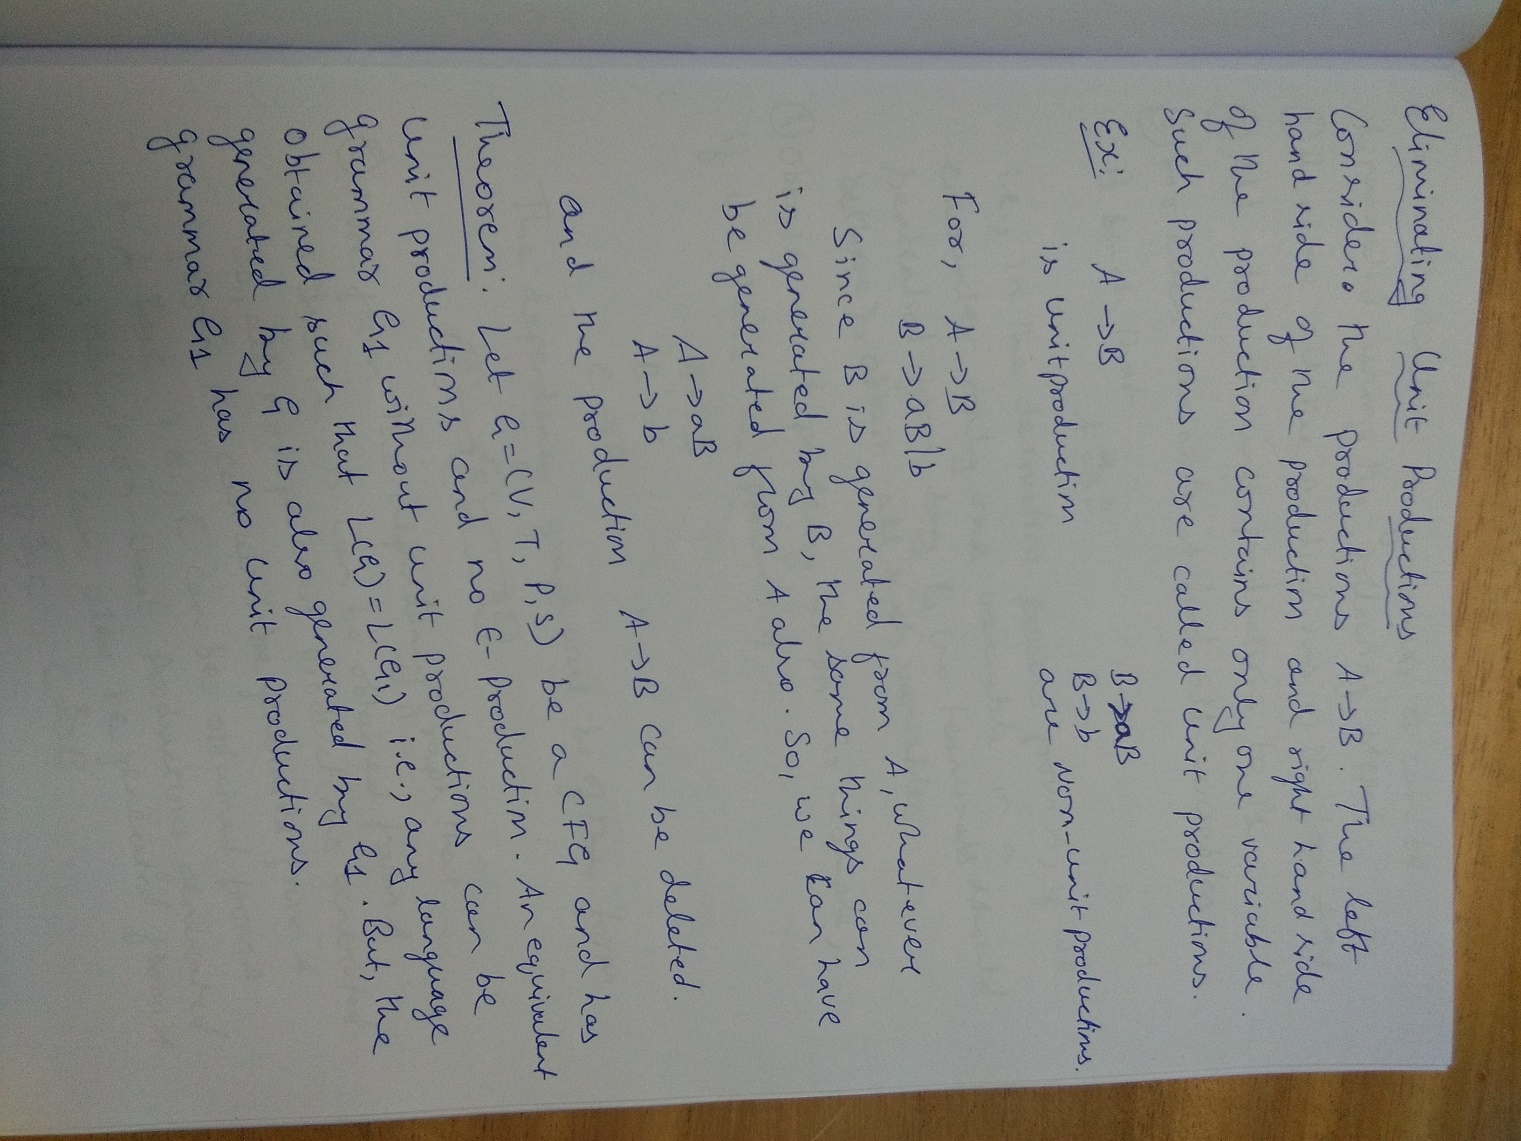 Eliminating Unit Productions
Consider the productions A→B. The left
hand side of the production and right hand side
of the production contains only one variable.
Such productions are called unit productions.
Ex: A→B
is unit production
B→aB
B→b
are Non-unit productions.
For, A→B
B→aB|b
Since B is generated from A, whatever
is generated by B, the same things can
be generated from A also. So, we can have
A→aB
A→b
and the production A→B can be deleted.
Theorem: Let G=(V, T, P, S) be a CFG and has
unit productions and no ϵ-production. An equivalent
grammar G1 without unit productions can be
obtained such that L(G)=L(G1) i.e., any language
generated by G is also generated by G1. But, the
grammar G1 has no unit productions.